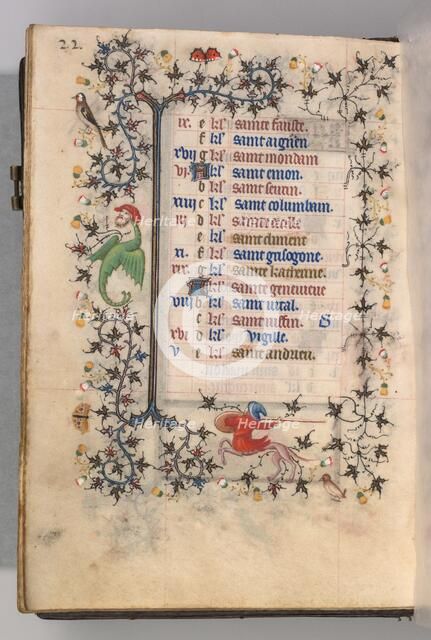 22.
ix. e kl' sainte fauste.
f kl' saint aignen
xvii g kl' saint mondain
vi. A kl' saint emon.
b kl' saint seurin.
xiiii c kl' saint columbain.
iii d kl' sainte cecile
e kl' saint climent
xi. f kl' saint grisogone.
xix. g kl' sainte katherine.
A kl' sainte genevieve
viii b kl' saint vital.
c kl' saint S
xvi d kl' vigille.
v e kl' saint andrieu.
Heritage
Heritage
Heritage
Heritage
Heritage